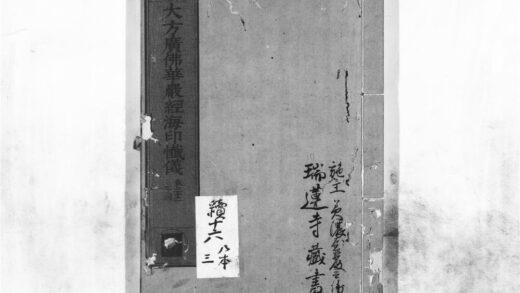 施主 美濃
瑞蓮寺藏書
大方廣佛華嚴經海印懺儀
續十六 八本
三